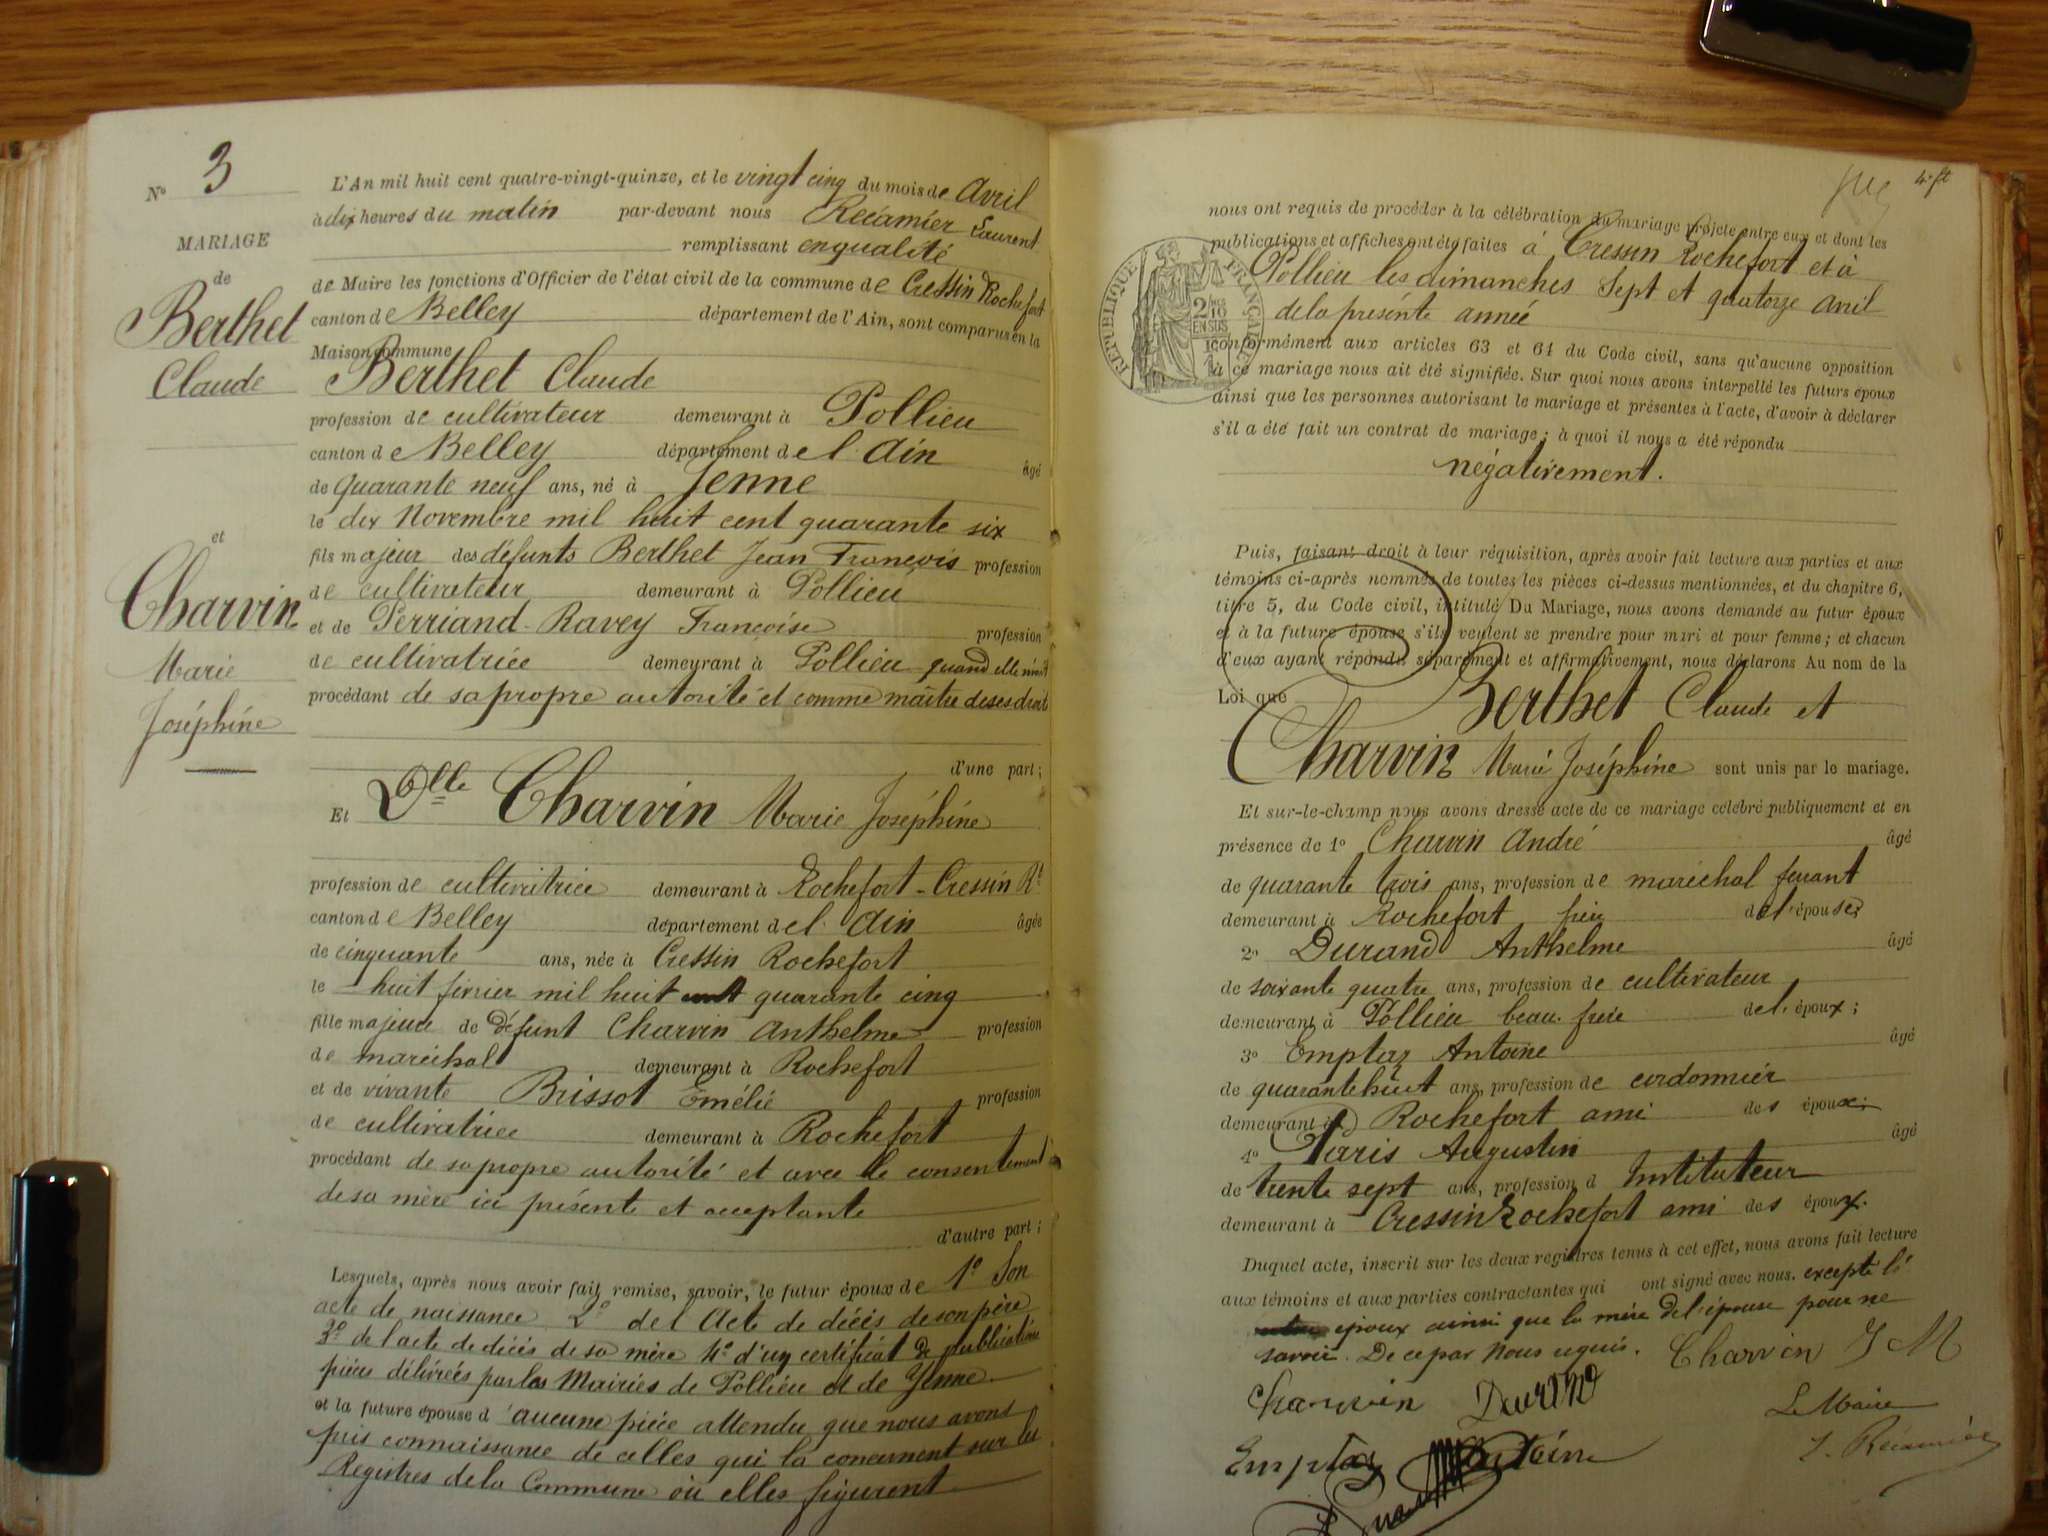 No 3
MARIAGE
de
Berthet
Claude
et
Charvin
Marie
Joséphine
L'An mil huit cent quatre-vingt-quinze, et le vingt cinq du mois de Avril
à dix heures du matin par-devant nous Récamier Laurent
remplissant en qualité
de Maire les fonctions d'Officier de l'état civil de la commune de Cressin Rochefort
canton de Belley département de l'Ain, sont comparus en la
Maison commune
Berthet Claude
profession de cultivateur demeurant à Pollieu
canton de Belley département de l'Ain âgé
de quarante neuf ans, né à Jenne
le dix Novembre mil huit cent quarante six
fils majeur des défunts Berthet Jean François profession
de cultivateur demeurant à Pollieu
et de Perriand-Ravey Françoise profession
de cultivatrice demeurant à Pollieu quand elle
procédant de sa propre autorité et comme maître de ses droits
d'une part;
Et Dlle Charvin Marie Joséphine
profession de cultivatrice demeurant à Rochefort-Cressin Rt
canton de Belley département de l'Ain âgée
de cinquante ans, née à Cressin Rochefort
le huit février mil huit cent quarante cinq
fille majeure de défunt Charvin Anthelme profession
de maréchal demeurant à Rochefort
et de vivante Brissot Emélie profession
de cultivatrice demeurant à Rochefort
procédant de sa propre autorité et avec le consentement
de sa mère ici présente et acceptante
d'autre part;
Lesquels, après nous avoir fait remise, savoir, le futur époux de 1° Son
acte de naissance 2° de l'Acte de décès de son père
3° de l'acte de décès de sa mère 4° d'un certificat de publication
pièces délivrées par les Mairies de Pollieu et de Yenne
et la future épouse d'aucune pièce attendu que nous avons
pris connaissance de celles qui la concernent sur les
Registres de la Commune où elles figurent
nous ont requis de procéder à la célébration du mariage projeté entre eux et dont les
publications et affiches ont été faites à Cressin Rochefort et à
Pollieu les dimanches Sept et quatorze avril
de la présente année
conformément aux articles 63 et 64 du Code civil, sans qu'aucune opposition
à ce mariage nous ait été signifiée. Sur quoi nous avons interpellé les futurs époux
ainsi que les personnes autorisant le mariage et présentes à l'acte, d'avoir à déclarer
s'il a été fait un contrat de mariage; à quoi il nous a été répondu
négativement.
RÉPUBLIQUE FRANÇAISE
EN SUS
Puis, faisant droit à leur réquisition, après avoir fait lecture aux parties et aux
témoins ci-après nommés de toutes les pièces ci-dessus mentionnées, et du chapitre 6,
titre 5, du Code civil, intitulé Du Mariage, nous avons demandé au futur époux
et à la future épouse s'ils veulent se prendre pour mari et pour femme; et chacun
d'eux ayant répondu séparément et affirmativement, nous déclarons Au nom de la
Loi que Berthet Claude et
Charvin Marie Joséphine sont unis par le mariage.
Et sur-le-champ nous avons dressé acte de ce mariage célébré publiquement et en
présence de 1° Charvin André âgé
de quarante trois ans, profession de maréchal ferrant
demeurant à Rochefort frère de l'épouse;
2° Durand Anthelme âgé
de soixante quatre ans, profession de cultivateur
demeurant à Pollieu beau-frère de l'époux;
3° Emptaz Antoine âgé
de quarante huit ans, profession de cordonnier
demeurant à Rochefort ami des époux;
4° Paris Augustin âgé
de trente sept ans, profession d Instituteur
demeurant à Cressin Rochefort ami des époux.
Duquel acte, inscrit sur les deux registres tenus à cet effet, nous avons fait lecture
aux témoins et aux parties contractantes qui ont signé avec nous, excepté l'
époux ainsi que la mère de l'épouse pour ne
savoir. De ce par Nous requis. Charvin J M
Charvin Durand
Le Maire
Emptaz Antoine
L. Récamier